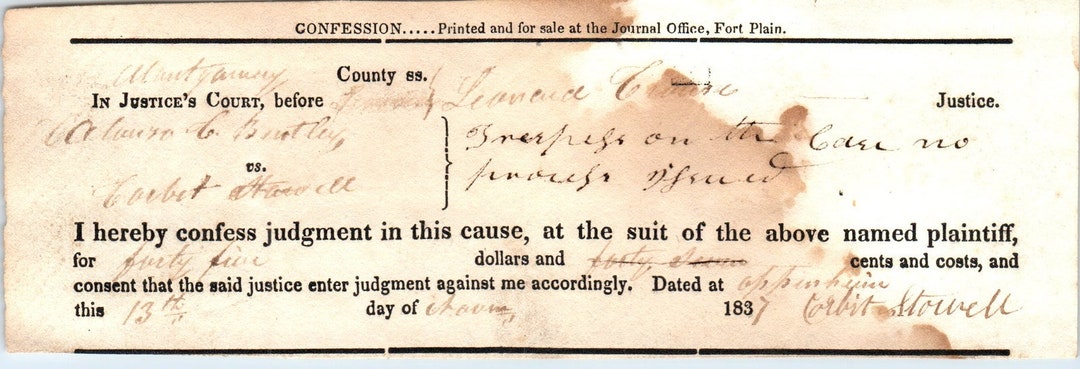 CONFESSION.....Printed and for sale at the Journal Office, Fort Plain.
Montgomery County ss.
IN JUSTICE'S COURT, before Leonard Justice.
Alonzo C Bentley
vs.
Corbit Stowell
Trespass on the Case no
process issued
I hereby confess judgment in this cause, at the suit of the above named plaintiff,
for forty five dollars and forty seven cents and costs, and
consent that the said justice enter judgment against me accordingly. Dated at oppenheim
this 13th day of 1837 Corbit Stowell